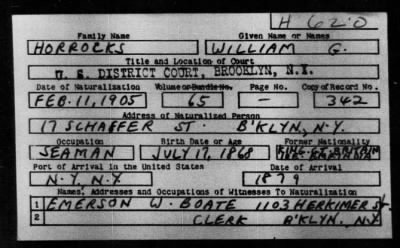 H 620
Family Name Given Name or Names
HORROCKS WILLIAM G.
Title and Location of Court
U. S. DISTRICT COURT, BROOKLYN, N.Y.
Date of Naturalization Volume or Bundle No. Page No. Copy of Record No.
FEB. 11, 1905 65 — 342
Address of Naturalized Person
17 SCHAEFFER ST. B'KLYN, N.Y.
Occupation Birth Date or Age Former Nationality
SEAMAN JULY 17, 1868 KING GT. BRITAIN
Port of Arrival in the United States Date of Arrival
N.Y. N.Y 1879
Names, Addresses and Occupations of Witnesses To Naturalization
1 EMERSON W. BOATE 1103 HERKIMER ST.
2 CLERK B'KLYN. N.Y